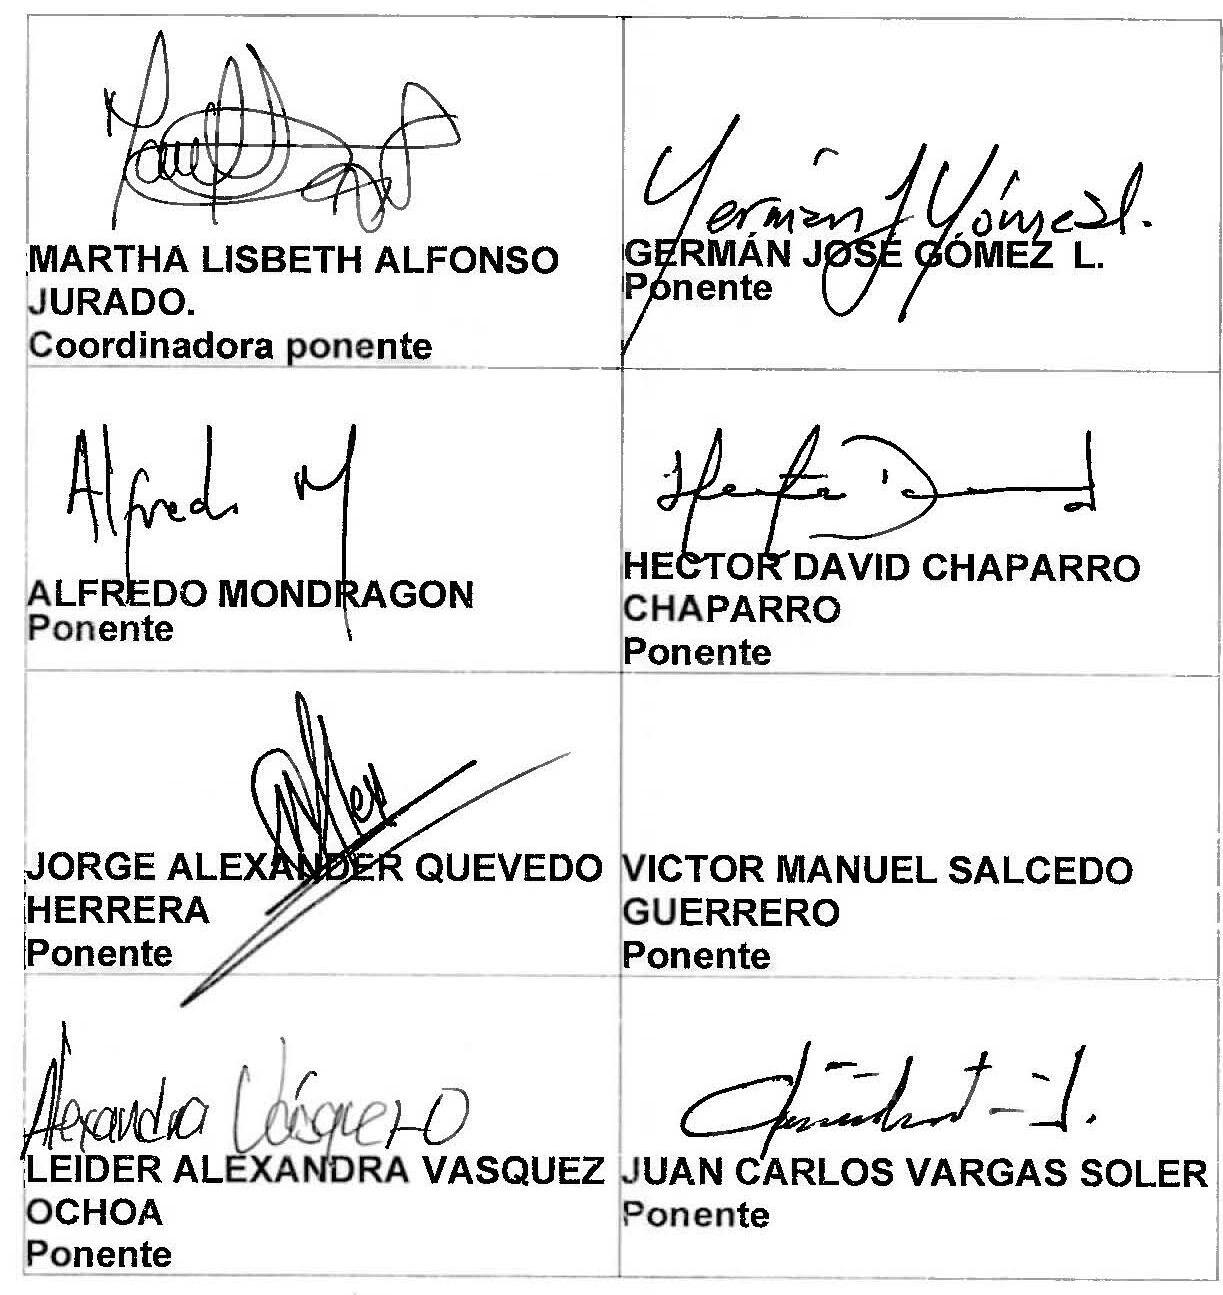 MARTHA LISBETH ALFONSO
JURADO.
Coordinadora ponente
Germán J Gómez L.
GERMÁN JOSÉ GÓMEZ L.
Ponente
Alfredo M
ALFREDO MONDRAGON
Ponente
HECTOR DAVID CHAPARRO
CHAPARRO
Ponente
JORGE ALEXANDER QUEVEDO
HERRERA
Ponente
VICTOR MANUEL SALCEDO
GUERRERO
Ponente
Alexandra Vásquez O
LEIDER ALEXANDRA VASQUEZ
OCHOA
Ponente
JUAN CARLOS VARGAS SOLER
Ponente